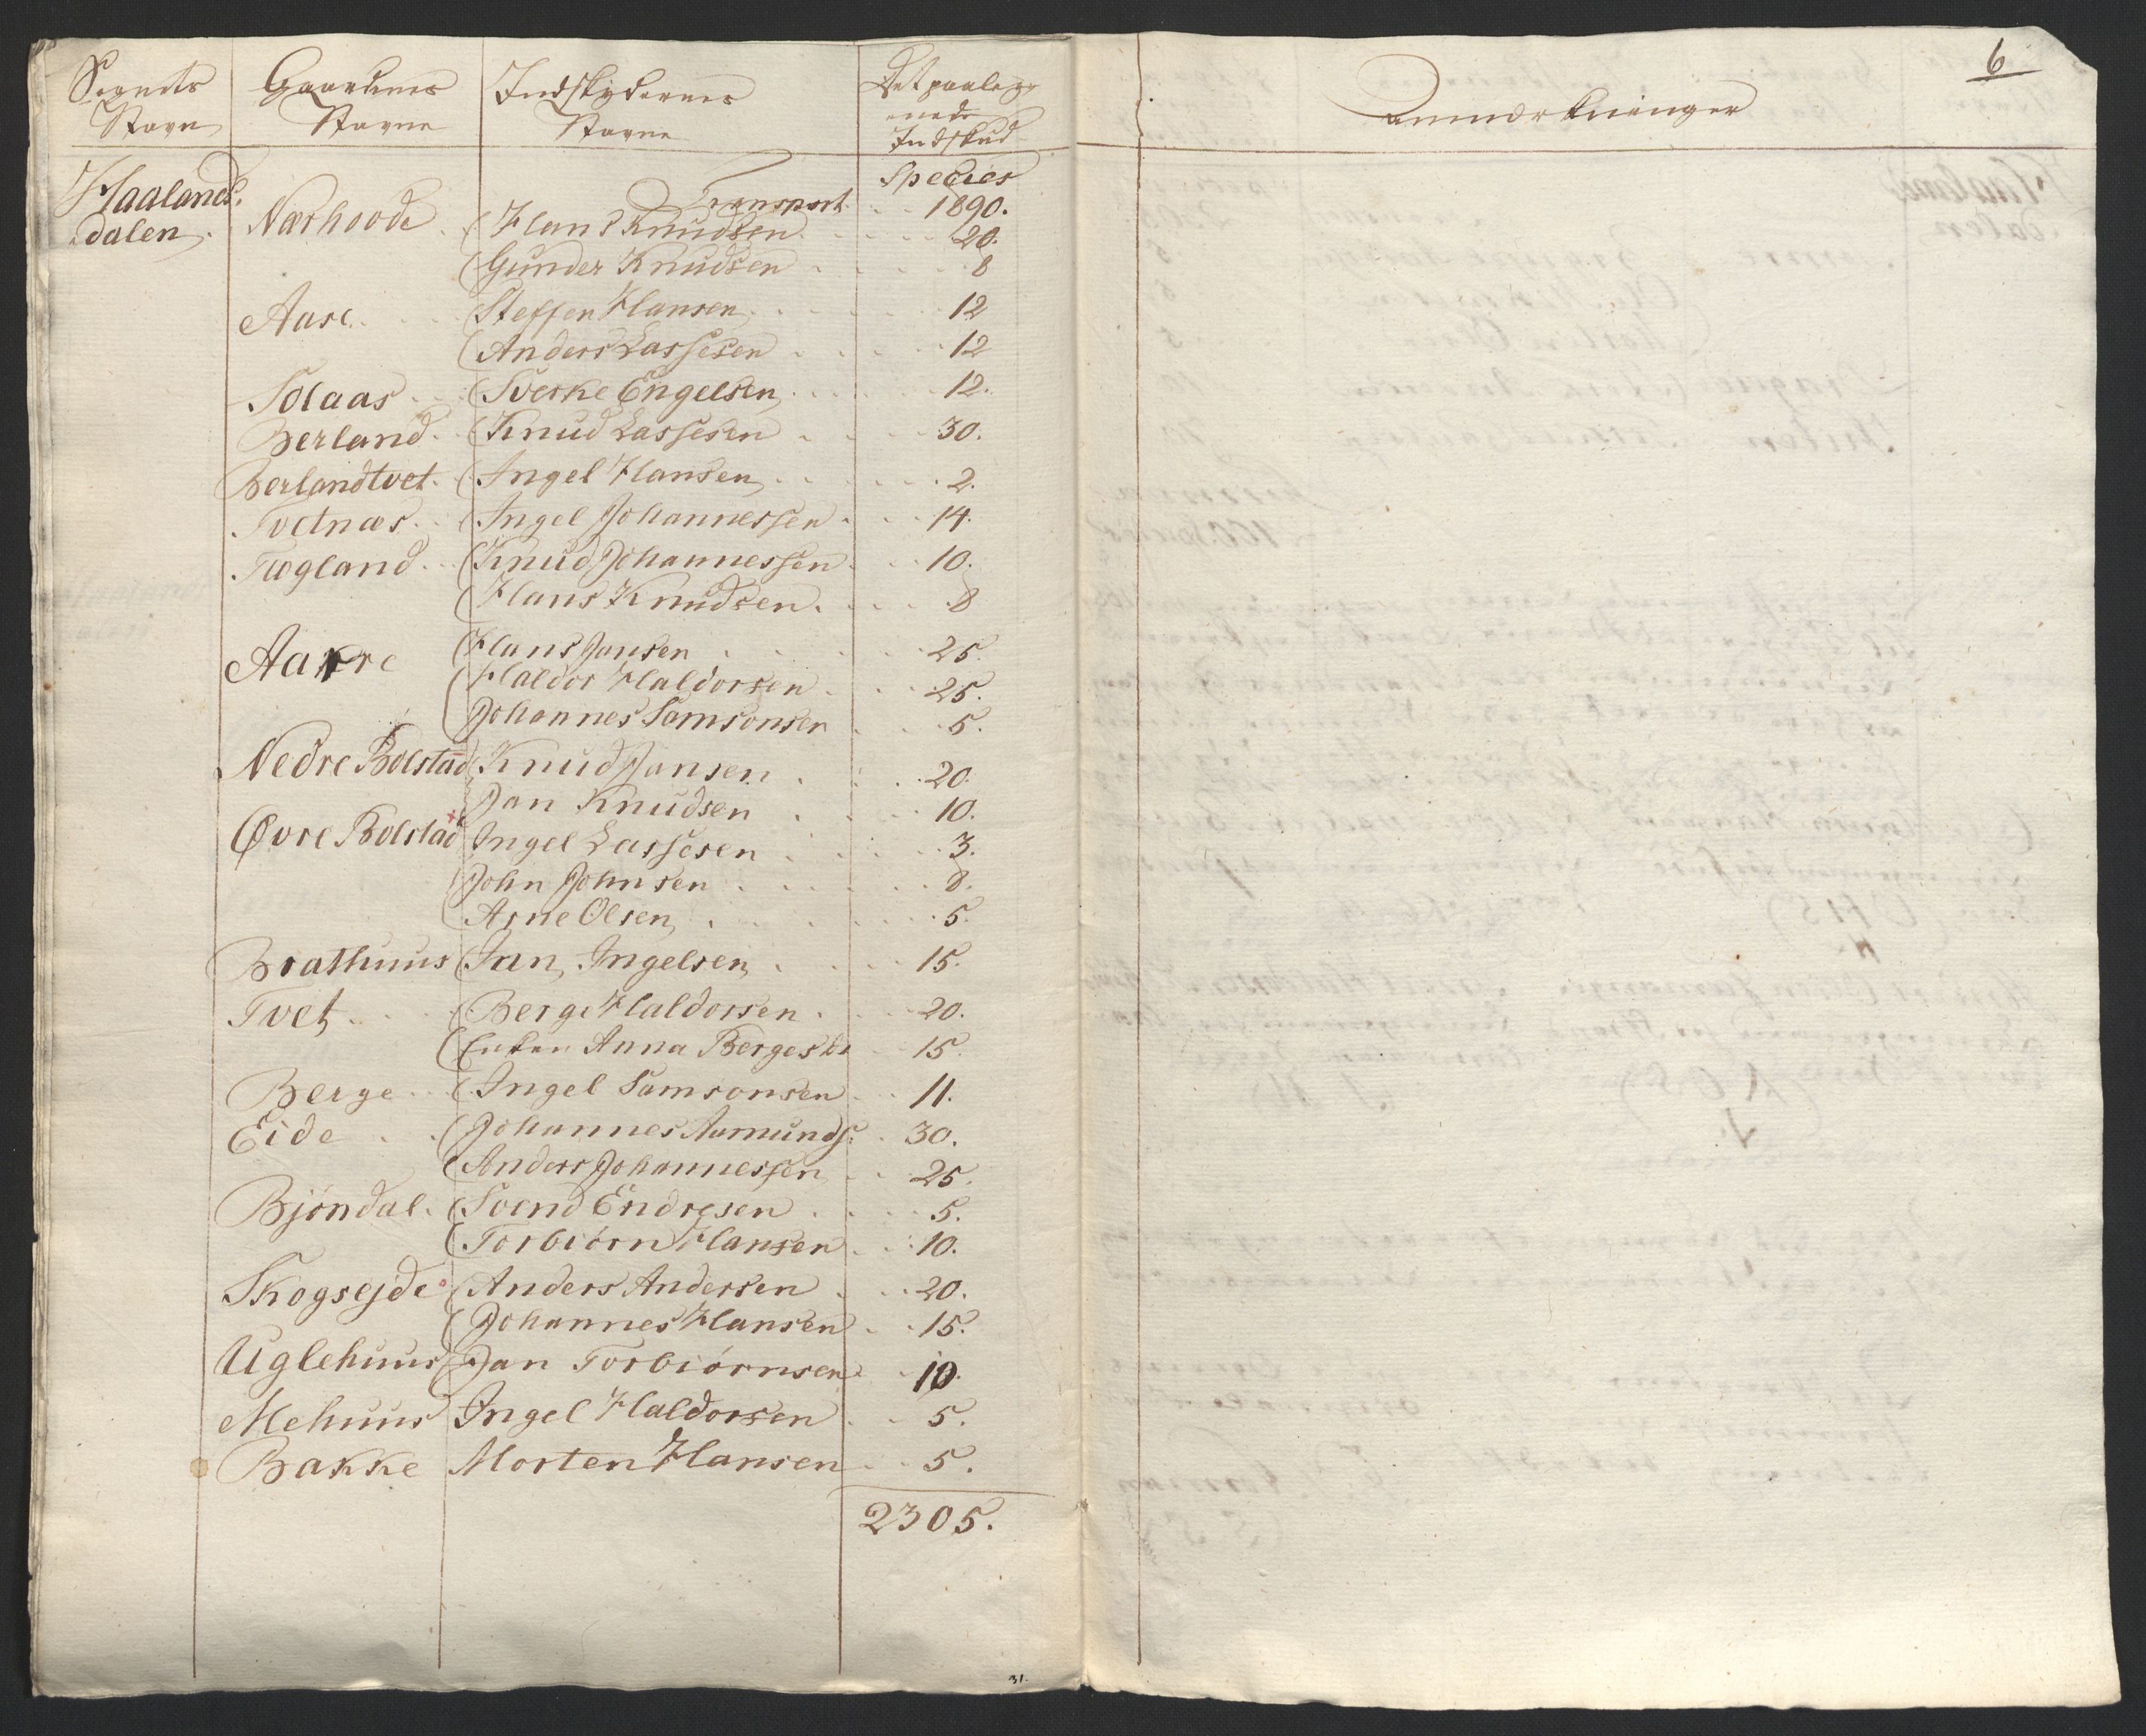 Sognets Navn | Gaardenes Navne | Indskydernes Navne | Det paalagnede Indskud | Anmærkninger | 6
Species
Haalands-dalen. | Transport | 1890.
Nærhovde | Hans Knudsen | 20.
Gunder Knudsen | 8
Aase | Steffen Hansen | 12
Anders Lassesen | 12
Solaas | Sverke Engelsen | 12.
Berland | Knud Lassesen | 30.
Berlandtvet | Ingel Hansen | 2.
Tvetnæs | Ingel Johannessen | 14.
Tægland | Knud Johannessen | 10.
Hans Knudsen | 8
Aarre | Hans Jansen | 25.
Haldor Haldorsen | 25.
Johannes Samsonsen | 5.
Nedre Bolstad | Knud Jansen | 20.
Jan Knudsen | 10.
Øvre Bolstad | Ingel Lassesen | 3.
John Johnsen | 8.
Arne Olsen | 5.
Brathuus | Jan Ingelsen | 15.
Tvet | Berge Haldorsen | 20.
Enken Anna Bergesdr | 15.
Berge | Ingel Samsonsen | 11.
Eide | Johannes Aamunds: | 30.
Anders Johannessen | 25.
Bjöndal | Svend Endresen | 5.
Torbiörn Hansen | 10.
Skogsejde | Anders Andersen | 20.
Johannes Hansen | 15.
Uglehuus | Jan Torbiörnsen | 10.
Mehuus | Ingel Haldorsen | 5.
Bakke | Morten Hansen | 5.
2305.
31.